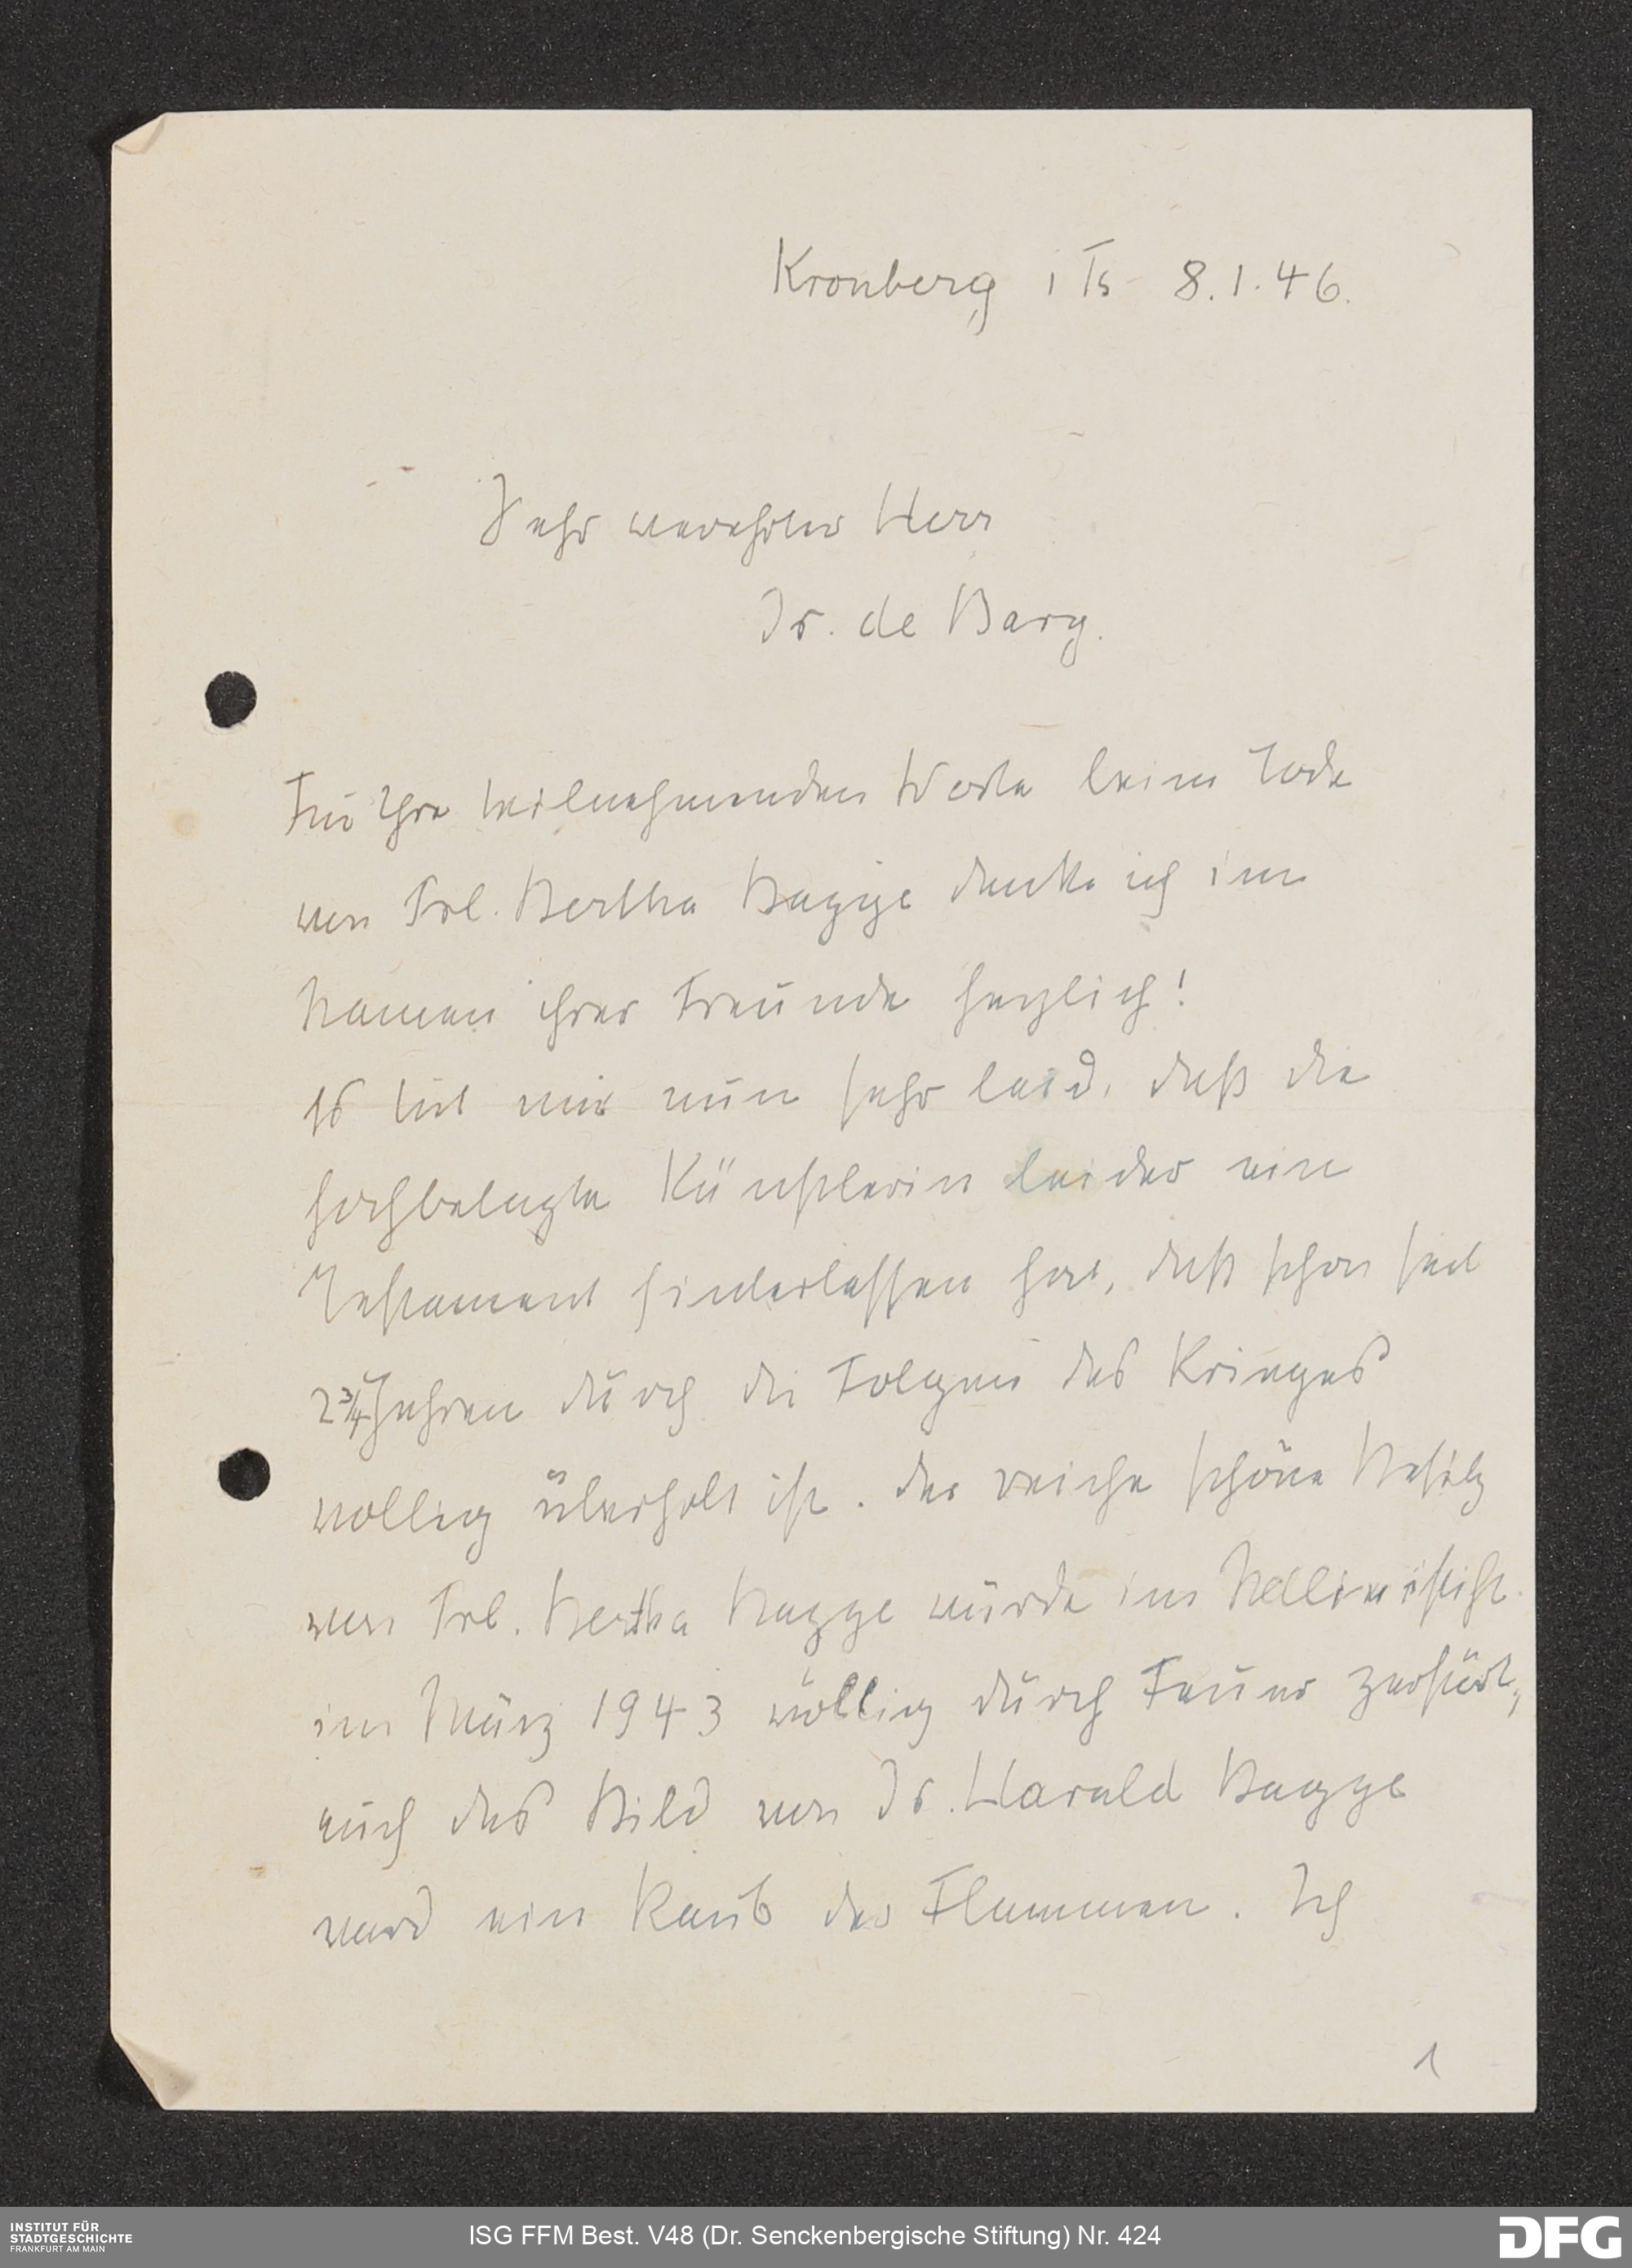 Kronberg i Ts 8.1.46.
Sehr verehrter Herr
Dr. de Bary.
Für Ihre teilnehmenden Worte beim Tode
von Frl. Bertha Bagge danke ich im
Namen ihrer Freunde herzlich!
Es tut mir nun sehr leid, daß die
hochbetagte Künstlerin leider ein
Testament hinterlassen hat, daß schon seit
2 3/4 Jahren durch die Folgen des Krieges
völlig überholt ist. Der reiche schöne Besitz
von Frl. Bertha Bagge wurde im Nellinistift
im März 1943 völlig durch Feuer zerstört,
auch das Bild von Dr. Harald Bagge
ward ein Raub der Flammen. Ich
1
INSTITUT FÜR
STADTGESCHICHTE
FRANKFURT AM MAIN
ISG FFM Best. V48 (Dr. Senckenbergische Stiftung) Nr. 424
DFG